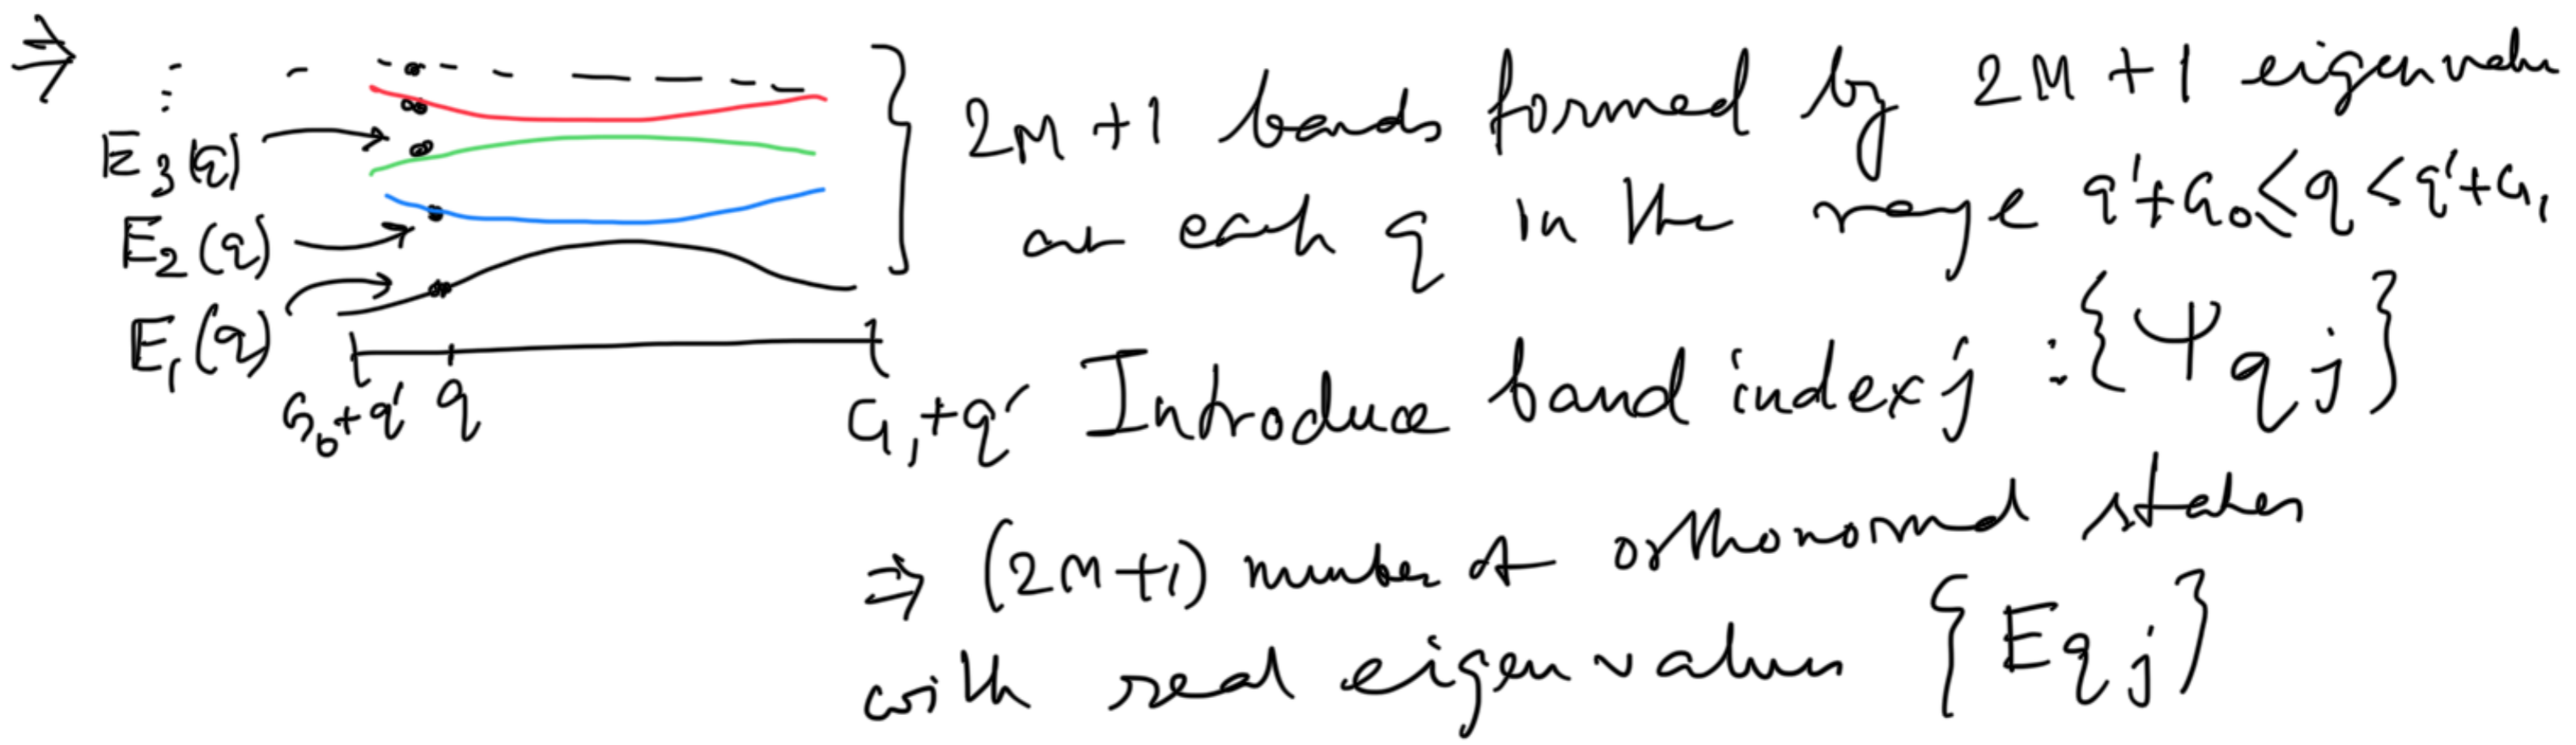 ⇒
⋮
E₃(q)
E₂(q)
E₁(q)
G₀+q' q G₁+q'
2M+1 bands formed by 2M+1 eigenvalues
at each q in the range q'+G₀<q<q'+G₁
Introduce band index j : {Ψqj}
⇒ (2M+1) number of orthonormal states
with real eigenvalues {Eqj}